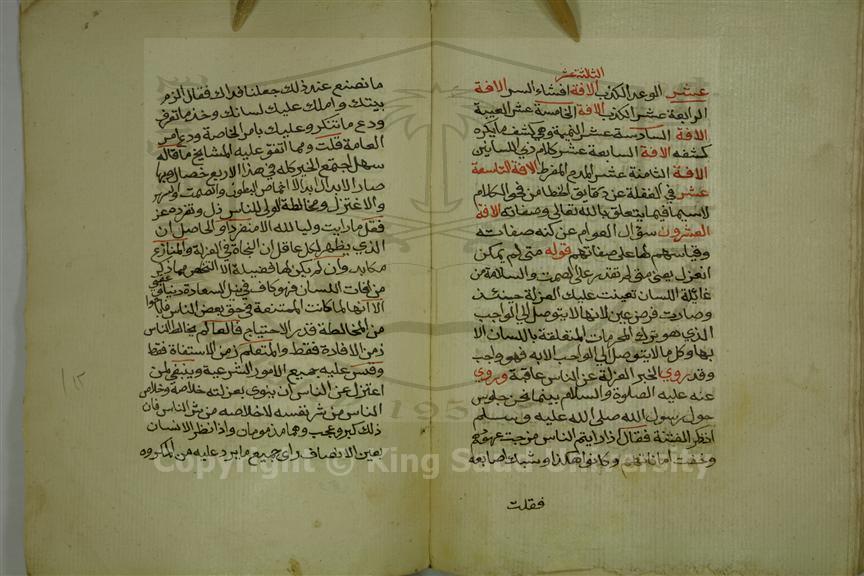 الثالثة عشر
عشر الوعد الكذب الافة افشاء السر الافة
الرابعة عشر الكذب الافة الخامسة عشر الغيبة
الافة السادسة عشر النميمة وهي كشف ما يكره
كشفه الافة السابعة عشر كلام ذي اللسانين
الافة الثامنة عشر المدح المفرط الافة التاسعة
عشر في الغفلة عن دقايق الخطا من فحوى الكلام
لاسيما فيما يتعلق بالله تعالى وصفاته الافة
العشرون سؤال العوام عن كنه صفاته
وقياسهم لها على صفاتهم قوله متى لم يمكن
انعزل يعنى متى لم تقدر على الصمت والسلامة من
غائلة اللسان تعينت عليك العزلة حينئذ
وصارت فرض عين لانها لا يتوصل الى الواجب
الذي هو ترك المحرمات المتعلقة باللسان الا
بها وكل ما لا يتوصل الى الواجب الا به فهو واجب
وقد روي الخبر العزلة عن الناس عافية وروي
عنه عليه الصلوة والسلام بينما نحن جلوس
حول رسول الله صلى الله عليه وسلم
اذ ذكر الفتنة فقال اذا رايتم الناس مرجت عهودهم
وخفت اماناتهم وكانوا هكذا وشبك اصابعه
فقلت
ما نصنع عند ذلك جعلنا فداك فقال الزم
بيتك واملك عليك لسانك وخذ ما تعرف
ودع ما تنكر وعليك بامر الخاصة ودع امر
العامة قلت ومما اتفق عليه المشايخ ما قاله
سهل اجتمع الخير كله في هذا الاربع خصال وبها
صار الابدال ابدالا اخماص البطون والصمت والسهر
والاعتزل ومخالطة الورى للناس ذل وتفرد عز
فقل ما رايت وليا لله الا منفردا والحاصل ان
الذي يظهر لكل عاقل ان النجاة في العزلة والمنازع
مكابد وان لم يكن لها فضيلة الا التطهر مما ذكر
من افات اللسان فهو كاف في نيل السعادة دنيا
الا انها لما كانت الممتنعة في حق بعض الناس
من المخالطة قدر الاحتياج فالعالم يخالط الناس
زمن الافادة فقط والمتعلم زمن الاستفاة فقط
وقس عليه جميع الامور الشرعية وينبغي لمن
اعتزل عن الناس ان ينوي بعزلته خلاصة وخلاص
الناس من شر نفسه لا خلاصه من شر الناس فان
ذلك كبر وعجب وهما مذمومان واذا نظر الانسان
بعين الانصاف راى جميع ما يرد عليه من المكروه
١٣
1957
Copyright © King Saud University